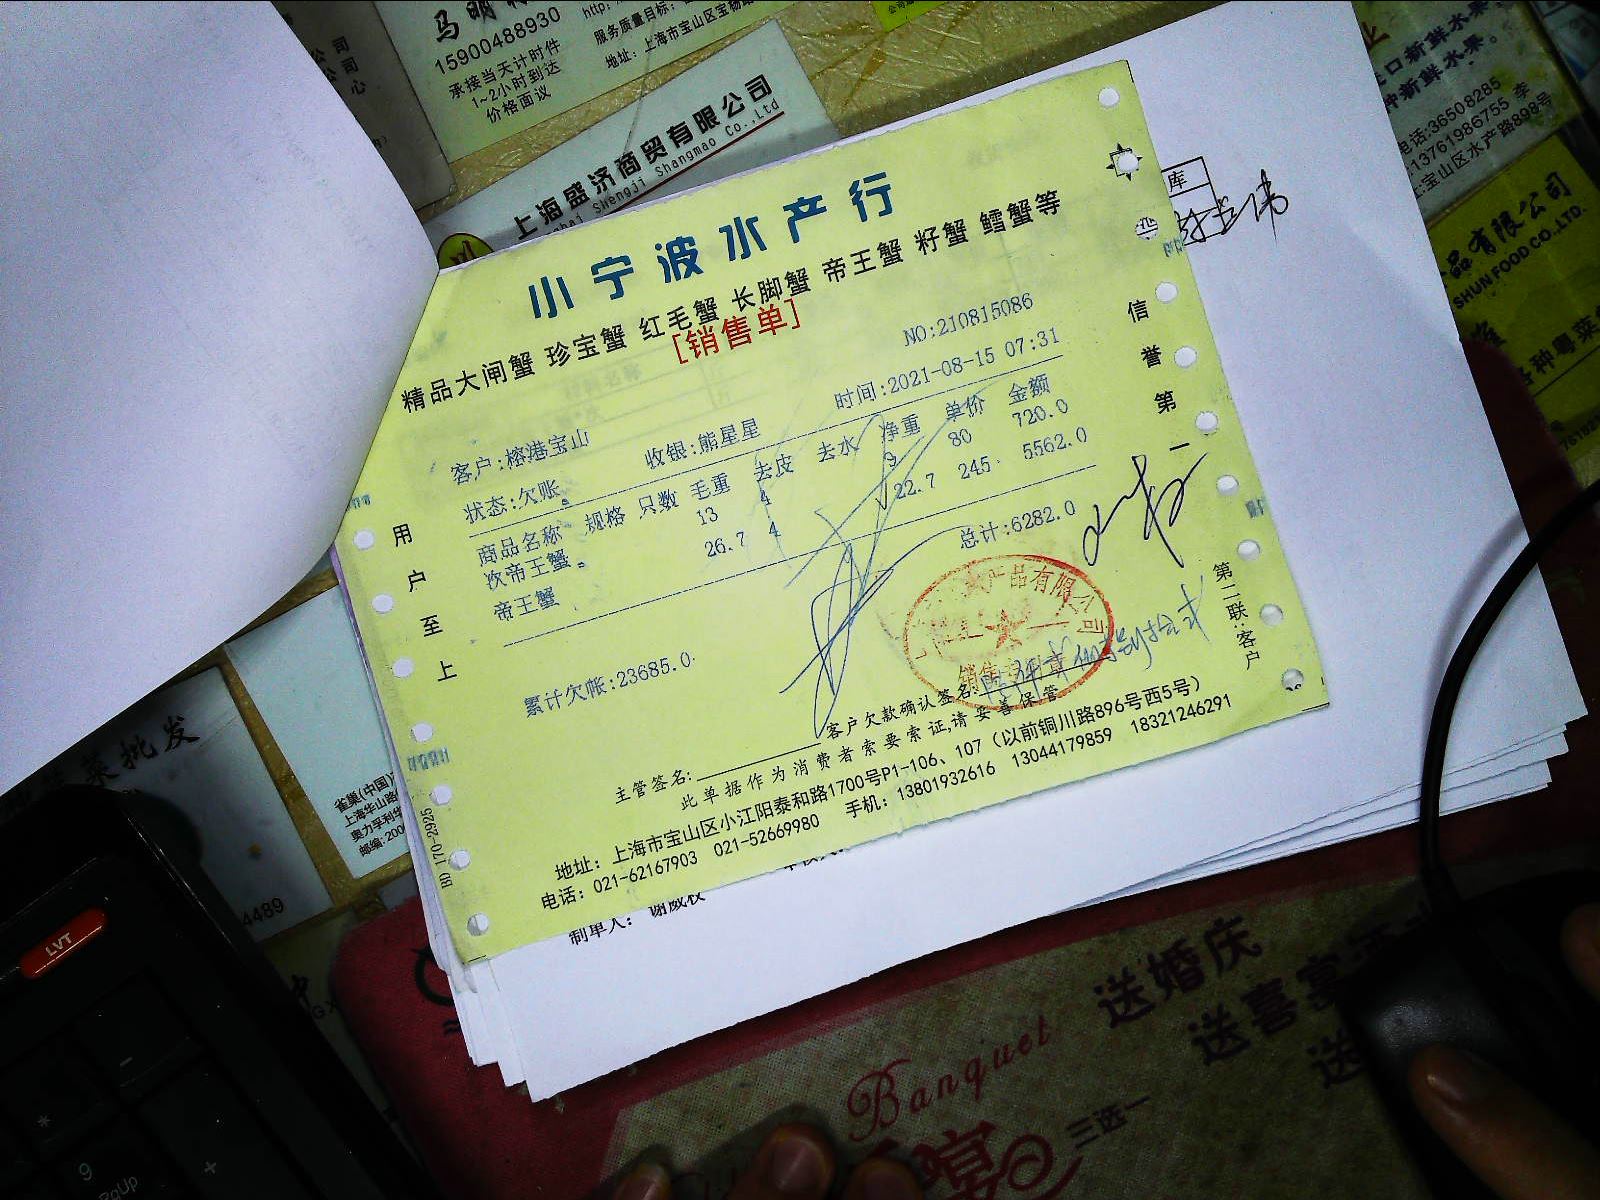 小宁波水产行
精品大闸蟹 珍宝蟹 红毛蟹 长脚蟹 帝王蟹 籽蟹 鳕蟹等
[销售单]
NO:210815086
客户:榕港宝山 收银:熊星星 时间:2021-08-15 07:31
状态:欠账
商品名称 规格 只数 毛重 去皮 去水 净重 单价 金额
次帝王蟹 13 4 9 80 720.0
帝王蟹 26.7 4 22.7 245 5562.0
总计:6282.0
累计欠帐:23685.0
主管签名: 客户欠款确认签名:
此单据作为消费者索要索证,请妥善保管
地址: 上海市宝山区小江阳泰和路1700号P1-106、107 (以前铜川路896号西5号)
电话: 021-62167903 021-52669980 手机: 13801932616 13044179859 18321246291
用户至上
信誉第一
第二联:客户
产品有限公司
制单人: 谢威权
库
马明
15900488930
承接当天计时件
1~2小时到达
价格面议
http:
服务质量目标:
地址: 上海市宝山区宝杨路
上海盛济商贸有限公司
Shengji Shangmao Co.,Ltd
公司
公司
心
口新鲜水果
种新鲜水果。
电话:36508285
13761986755 李
宝山区水产路898号
品有限公司
SHUN FOOD CO.,LTD.
各种粤菜
菜批发
雀巢(中国)
上海华山路
奥力孚利华
邮编:200
4489
LVT
9
PgUp
送婚庆
送喜宴
送
Banquet
三选一